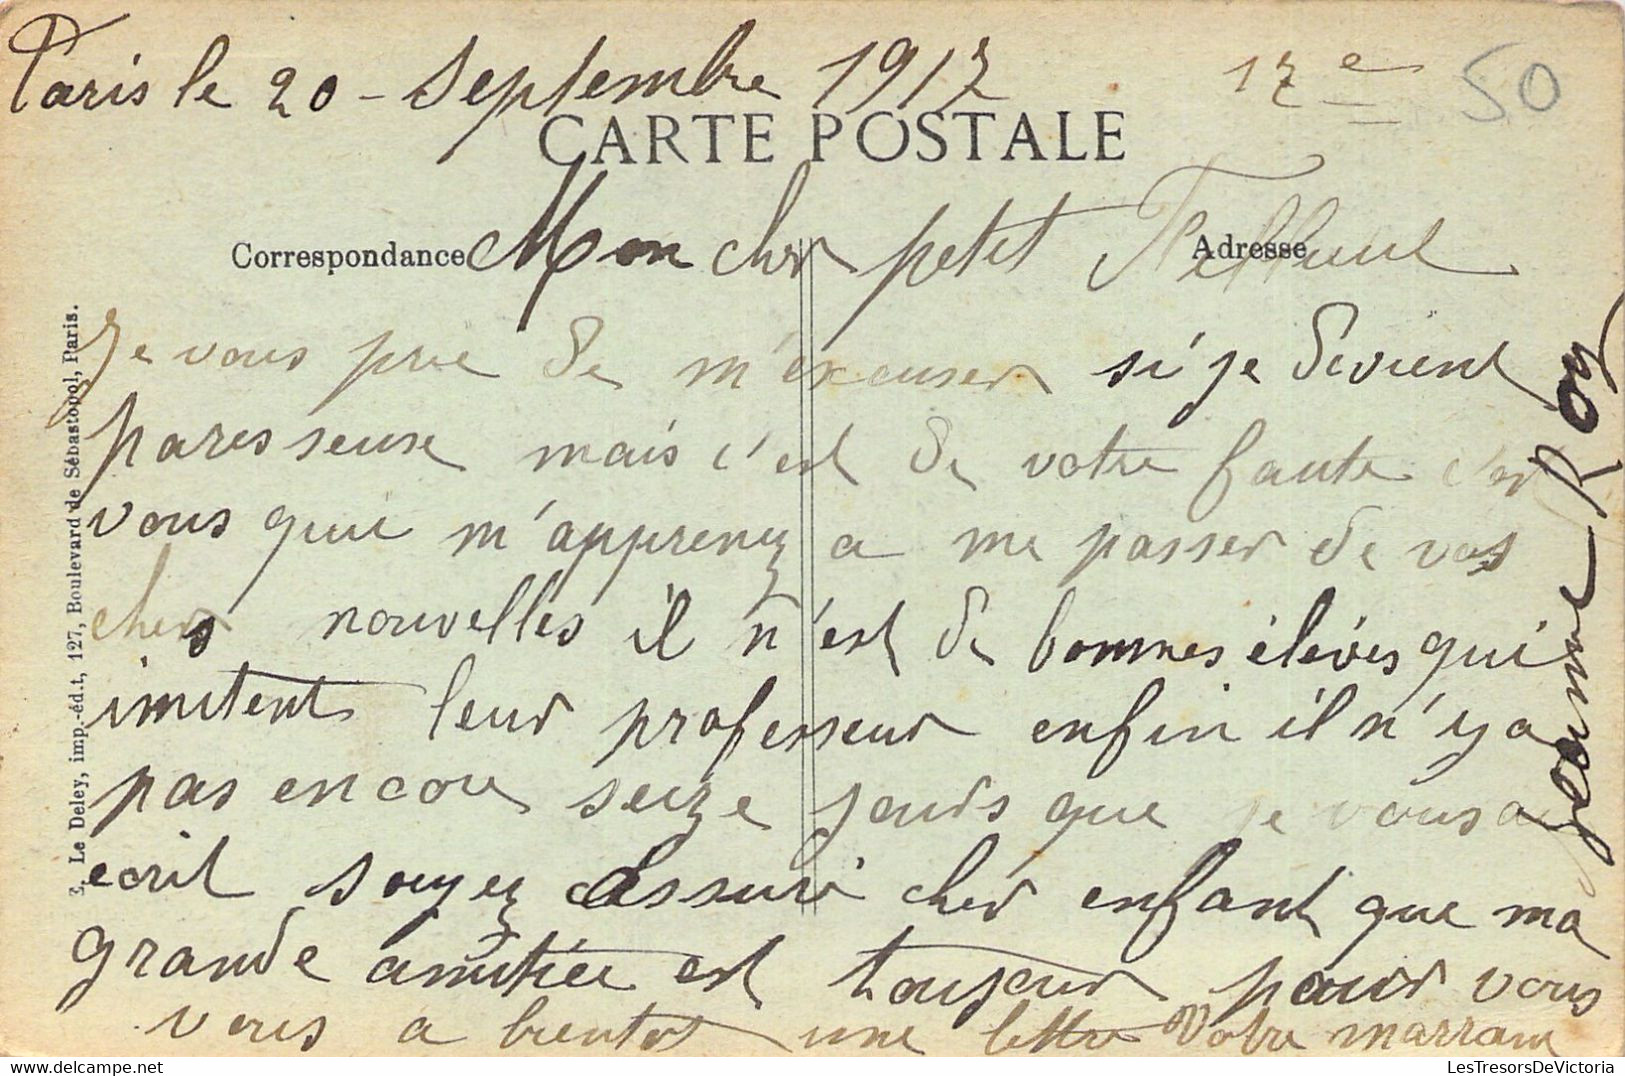 Paris le 20 - Septembre 1917 17e 50
CARTE POSTALE
Correspondance Mon cher petit Filleul Adresse
Je vous prie de m'excuser si je devient
paresseuse mais c'est de votre faute c'est
vous quui m'apprenez a me passer de vos
chers nouvelles il n'est de bonnes élèves qui
imitent leur professeur enfin il n'y a
pas encore seize jours que je vous ai
ecrit soyez Assuré cher enfant que ma
grande amitiée est toujour pour vous
vous a bientot une lettre Votre marraine
Jeanne Roy
E. Le Deley, imp.-éd.t, 127, Boulevard de Sébastopol, Paris.
LesTresorsDeVictoria.com
LesTresorsDeVictoria